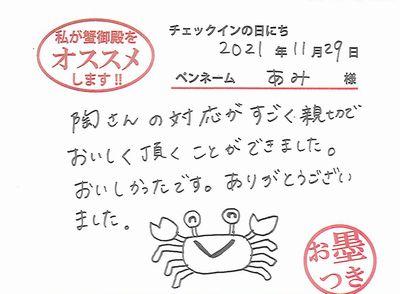 私が蟹御殿を
オススメ
します!!
チェックインの日にち
2021 年 11 月 29 日
ペンネーム あみ 様
陶さんの対応がすごく親切で
おいしく頂くことができました。
おいしかったです。ありがとうござい
ました。
お墨
つき